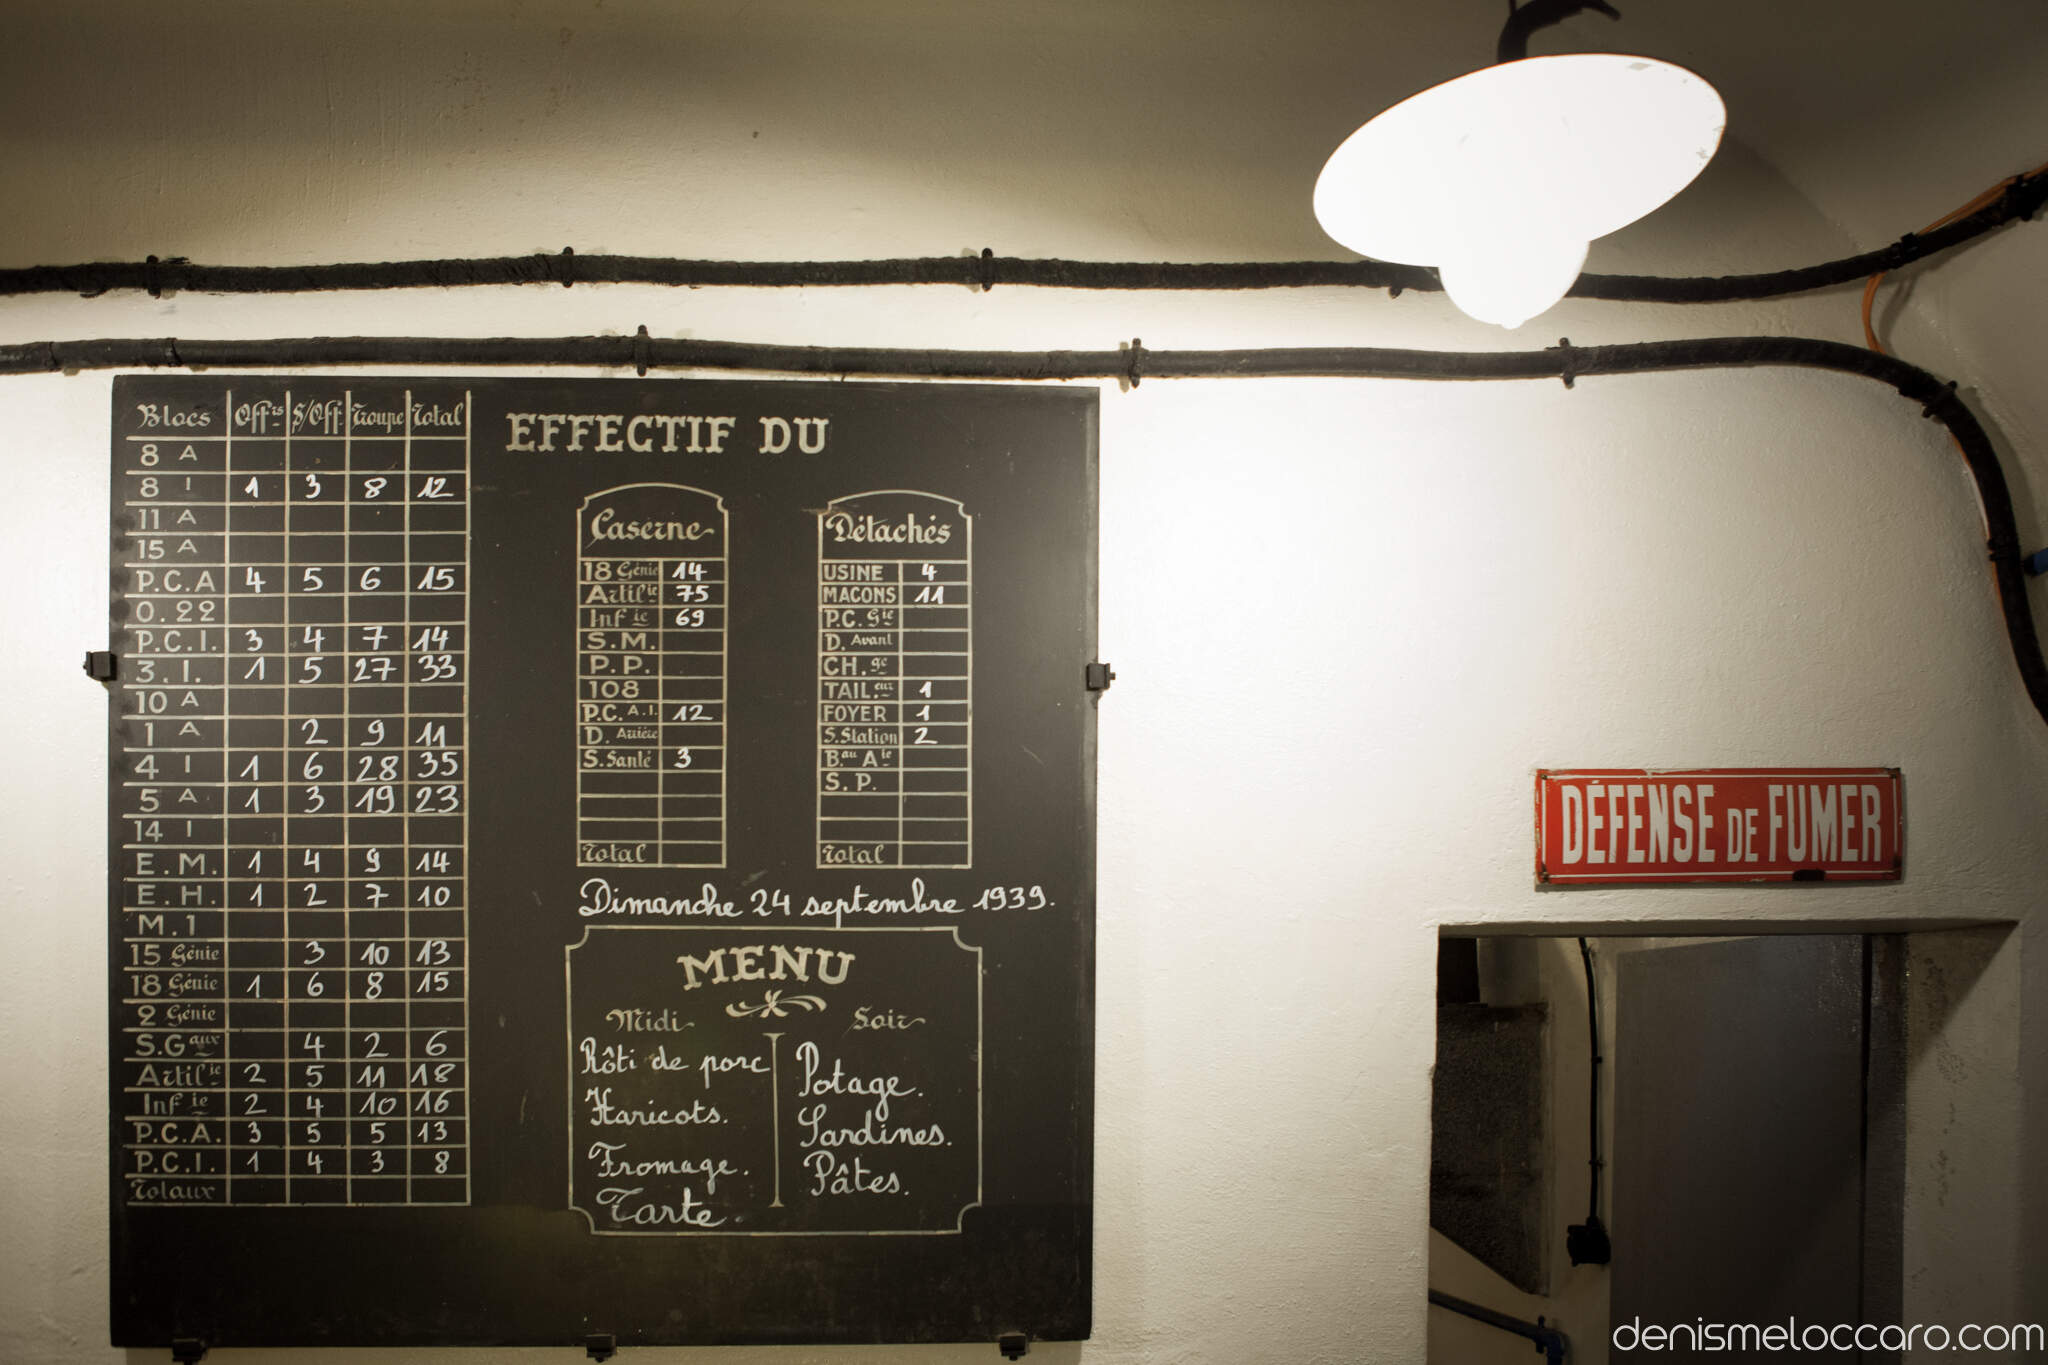 Blocs Offrs S/Off. Troupe Total
8 A
8 I 1 3 8 12
11 A
15 A
P.C.A 4 5 6 15
O.22
P.C.I. 3 4 7 14
3.I. 1 5 27 33
10 A
1 A 2 9 11
4 I 1 6 28 35
5 A 1 3 19 23
14 I
E.M. 1 4 9 14
E.H. 1 2 7 10
M.1
15 Génie 3 10 13
18 Génie 1 6 8 15
2 Génie
S.Gaux 4 2 6
Artilie 2 5 11 18
Infie 2 4 10 16
P.C.A. 3 5 5 13
P.C.I. 1 4 3 8
Totaux
EFFECTIF DU
Caserne
18 Génie 14
Artilie 75
Infie 69
S.M.
P.P.
108
P.C. A.I. 12
D. Arrière
S. Santé 3
Total
Détachés
USINE 4
MACONS 11
P.C. Gie
D. Avant
CH. ge
TAIL. eur 1
FOYER 1
S.Station 2
Bau Aie
S.P.
Total
Dimanche 24 septembre 1939.
MENU
Midi
Rôti de porc
Haricots.
Fromage.
Tarte.
Soir
Potage.
Sardines.
Pâtes.
DÉFENSE DE FUMER
denismeloccaro.com